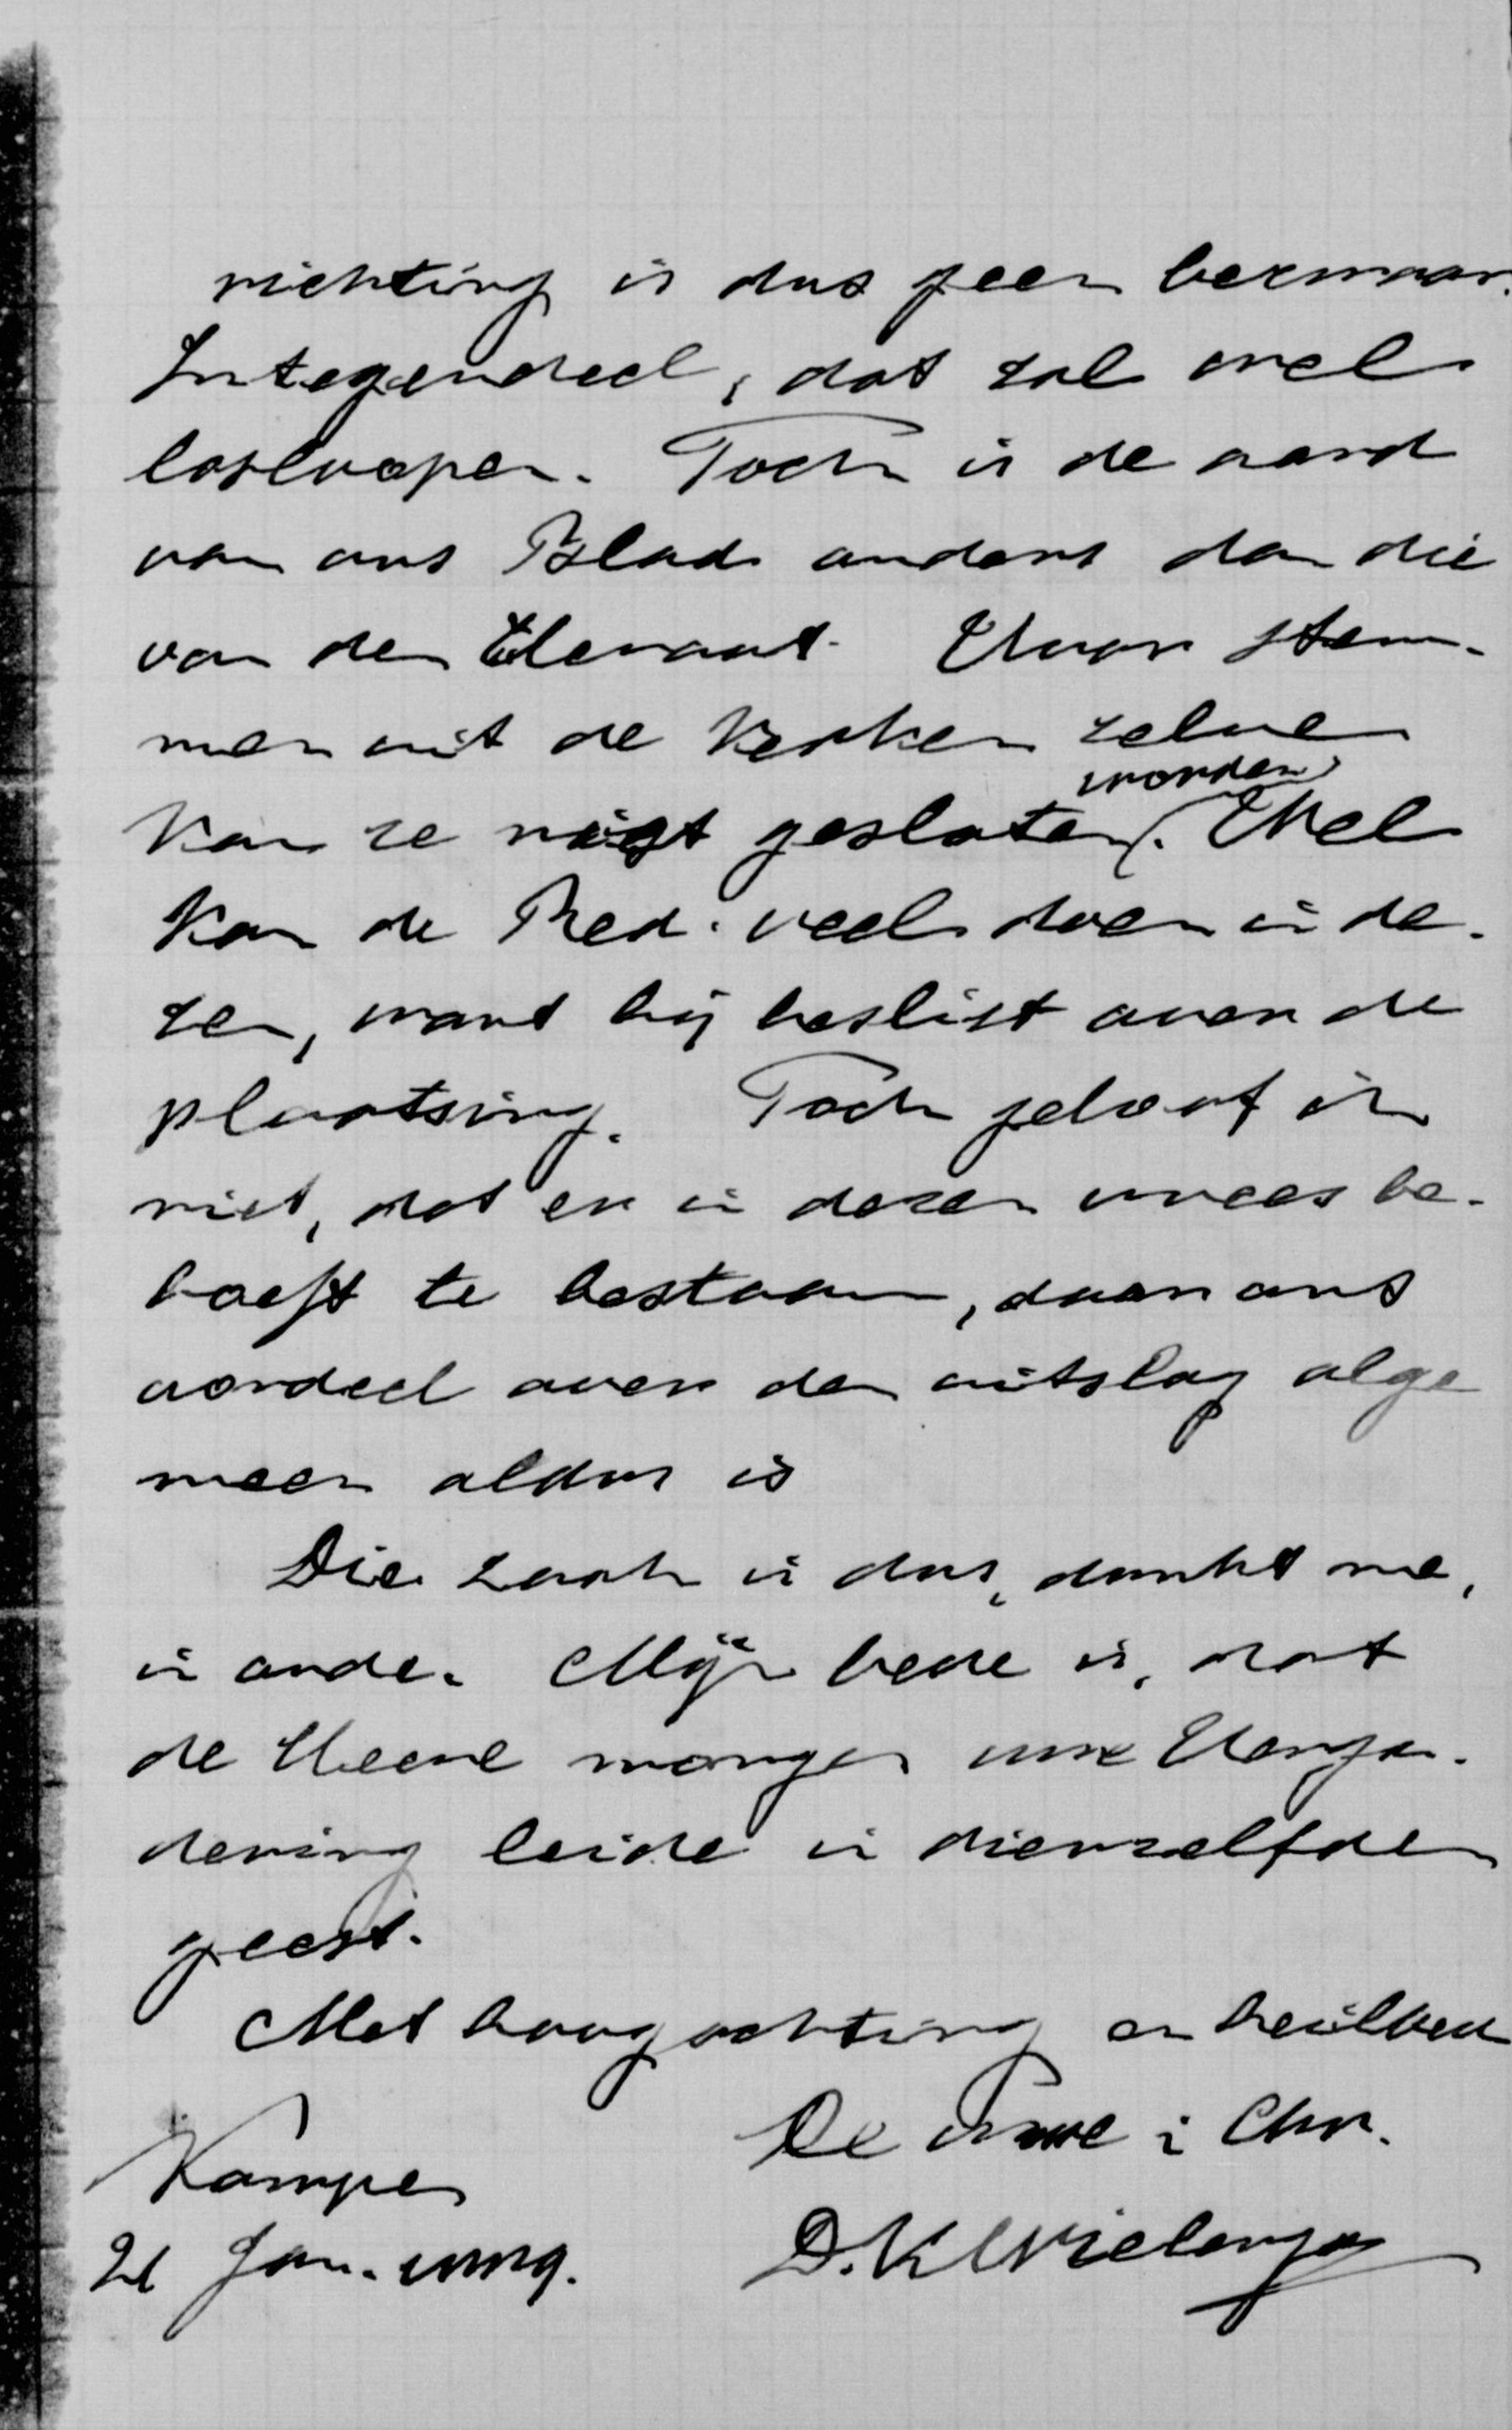 richting is dus geen bezwaar.
Integendeel, dat zal wel
losloopen. Toch is de aard
van ons Blad anders dan die
van den Heraut. Voor stem-
men uit de Kerken zelve
worden
kan ze niet gesloten. Wel
kan de Red. veel doen in de-
zen, want hij beslist over de
plaatsing. Toch geloof ik
niet, dat er in dezen vrees be-
hoeft te bestaan, daar ons
oordeel over den uitslag alge
meen aldus is
Die zaak is dus, dunkt me,
in orde. Mijn bede is, dat
de Heere morgen uwe Verga-
dering leide in dienzelfden
geest.
Met hoogachting en heilbede
De Uwe i Chr.
Kampen
D. K. Wielenga
21 Jan.